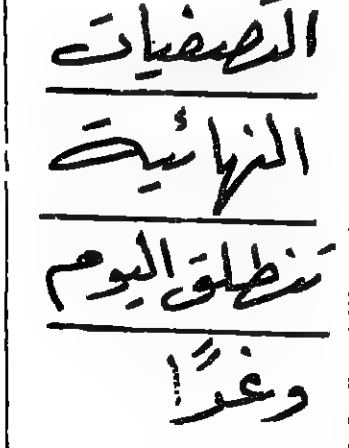 التصفيات
النهائية
تنطلق اليوم
وغدًا